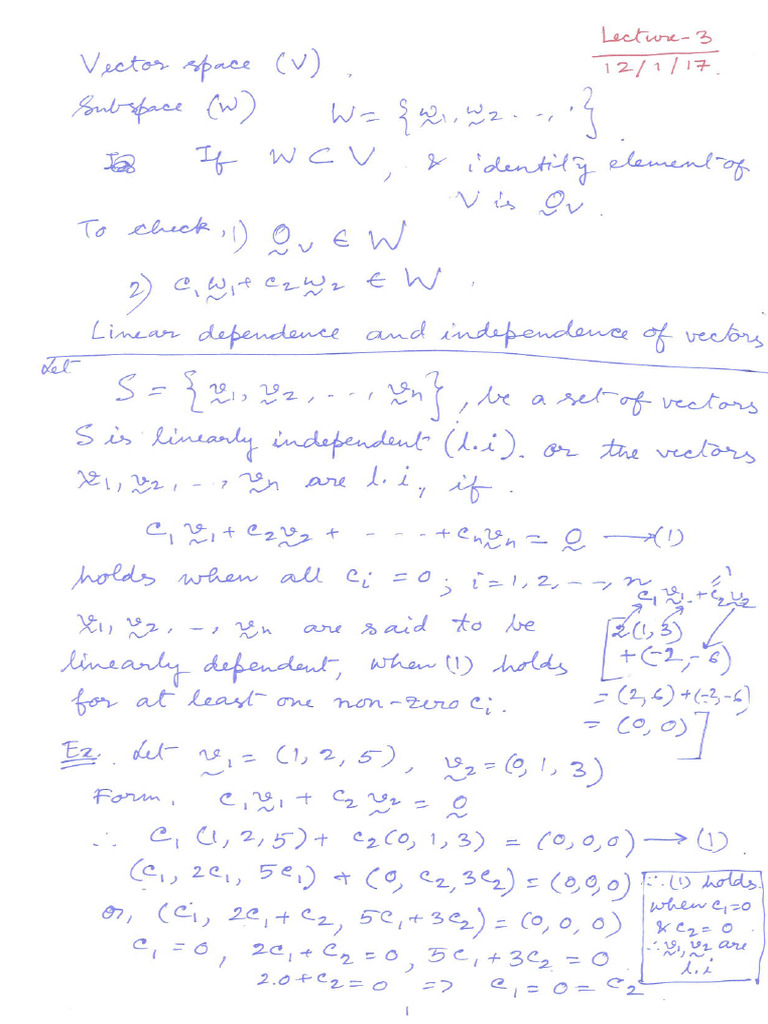 Lecture-3
12/1/17
Vector space (V).
Subspace (W) W = {w̰₁, w̰₂ ..., ·}
If W ⊂ V, & identity element of
V is 0̰ᵥ.
To check, 1) 0̰ᵥ ∈ W
2) c₁w̰₁ + c₂w̰₂ ∈ W.
Linear dependence and independence of vectors
Let
S = {v̰₁, v̰₂, ..., v̰ₙ}, be a set of vectors
S is linearly independent (l.i). or the vectors
v̰₁, v̰₂, ..., v̰ₙ are l.i, if.
c₁v̰₁ + c₂v̰₂ + - - - - + cₙv̰ₙ = 0̰ → (1)
holds when all cᵢ = 0; i = 1, 2, - - -, n
v̰₁, v̰₂, - -, v̰ₙ are said to be
linearly dependent, when (1) holds
for at least one non-zero cᵢ.
c₁v̰₁ + c₂v̰₂
[2(1, 3)
+ (-2, -6)
= (2, 6) + (-2, -6)
= (0, 0)]
Ex. Let v̰₁ = (1, 2, 5), v̰₂ = (0, 1, 3)
Form. c₁v̰₁ + c₂v̰₂ = 0̰
∴ c₁(1, 2, 5) + c₂(0, 1, 3) = (0, 0, 0) → (1).
(c₁, 2c₁, 5c₁) + (0, c₂, 3c₂) = (0, 0, 0)
or, (c₁, 2c₁ + c₂, 5c₁ + 3c₂) = (0, 0, 0)
c₁ = 0, 2c₁ + c₂ = 0, 5c₁ + 3c₂ = 0
2.0 + c₂ = 0 => c₁ = 0 = c₂
∴ (1) holds
when c₁=0
& c₂ = 0
∴ v̰₁, v̰₂ are
l.i
1